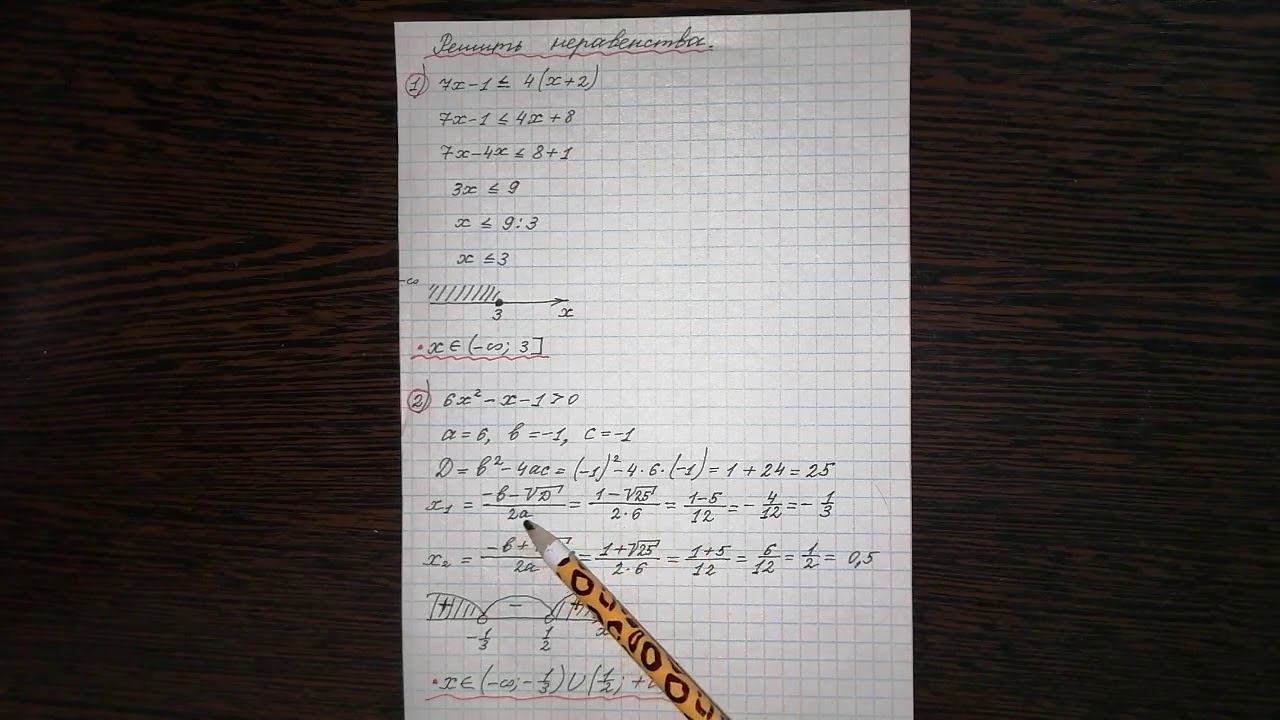 Решить неравенства.
1) 7x-1 ≤ 4(x+2)
7x-1 ≤ 4x+8
7x-4x ≤ 8+1
3x ≤ 9
x ≤ 9:3
x ≤ 3
-∞
3 x
• x ∈ (-∞; 3]
2) 6x² - x - 1 > 0
a=6, b=-1, c=-1
D = b² - 4ac = (-1)² - 4·6·(-1) = 1 + 24 = 25
x₁ = (-b-√D)/(2a) = (1-√25)/(2·6) = (1-5)/12 = -4/12 = -1/3
x₂ = (-b+ /(2a) = (1+√25)/(2·6) = (1+5)/12 = 6/12 = 1/2 = 0,5
+ - +
-1/3 1/2 x
• x ∈ (-∞; -1/3) ∪ (1/2; +